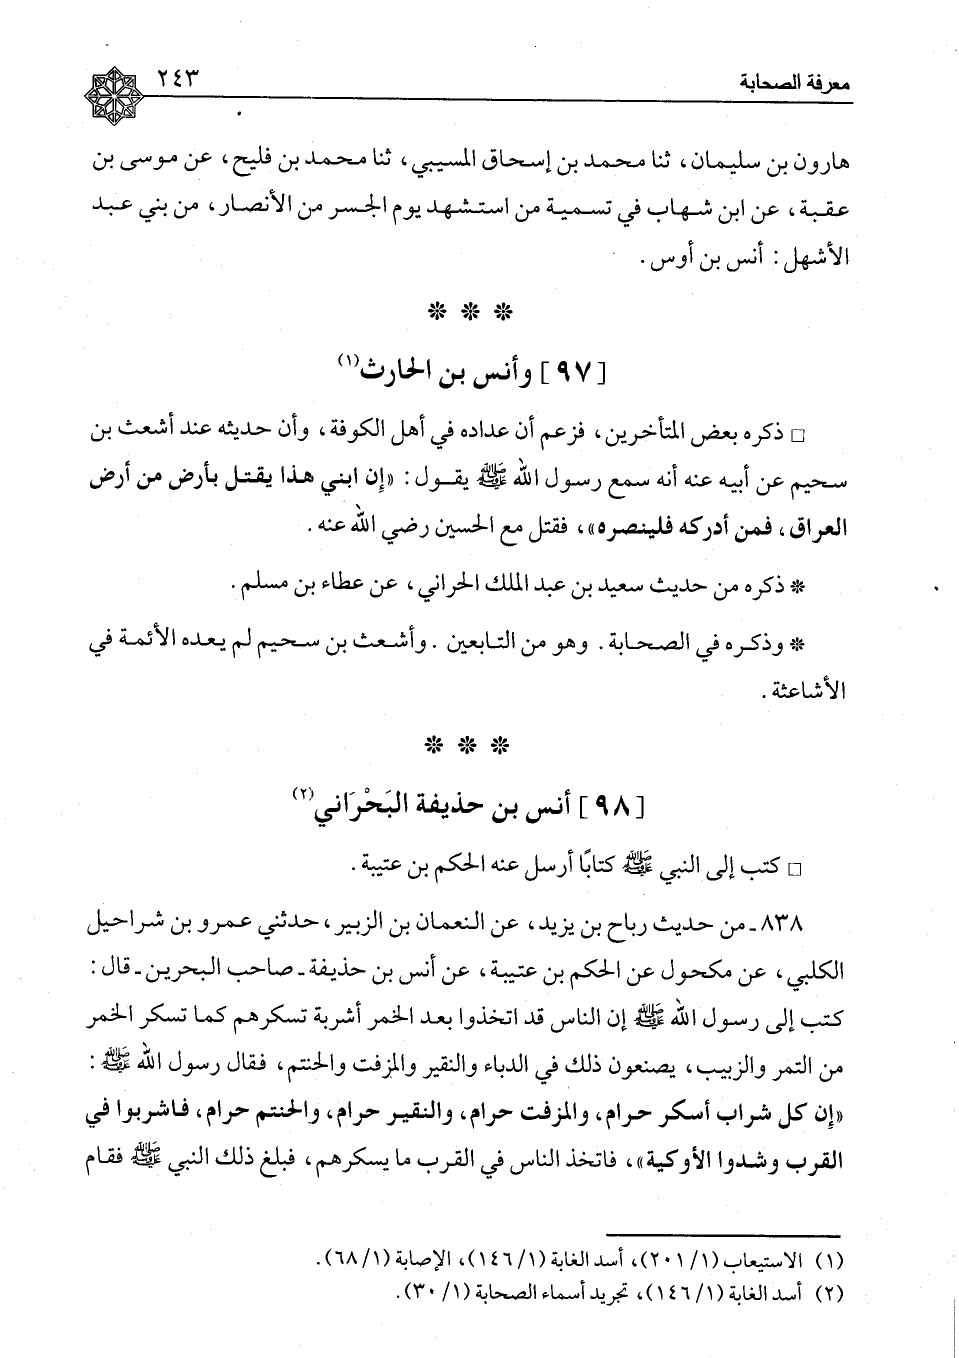 معرفة الصحابة ٢٤٣
هارون بن سليمان، ثنا محمد بن إسحاق المسيبي، ثنا محمد بن فليح، عن موسى بن
عقبة، عن ابن شهاب في تسمية من استشهد يوم الجسر من الأنصار، من بني عبد
الأشهل: أنس بن أوس.
❊ ❊ ❊
[٩٧] وأنس بن الحارث(١)
□ ذكره بعض المتأخرين، فزعم أن عداده في أهل الكوفة، وأن حديثه عند أشعث بن
سحيم عن أبيه عنه أنه سمع رسول الله ﷺ يقول: «إن ابني هذا يقتل بأرض من أرض
العراق، فمن أدركه فلينصره»، فقتل مع الحسين رضي الله عنه.
❊ ذكره من حديث سعيد بن عبد الملك الحراني، عن عطاء بن مسلم.
❊ وذكره في الصحابة. وهو من التابعين. وأشعث بن سحيم لم يعده الأئمة في
الأشاعثة.
❊ ❊ ❊
[٩٨] أنس بن حذيفة البَحْرَاني(٢)
□ كتب إلى النبي ﷺ كتابًا أرسل عنه الحكم بن عتيبة.
٨٣٨ ـ من حديث رباح بن يزيد، عن النعمان بن الزبير، حدثني عمرو بن شراحيل
الكلبي، عن مكحول عن الحكم بن عتيبة، عن أنس بن حذيفة ـ صاحب البحرين ـ قال:
كتب إلى رسول الله ﷺ إن الناس قد اتخذوا بعد الخمر أشربة تسكرهم كما تسكر الخمر
من التمر والزبيب، يصنعون ذلك في الدباء والنقير والمزفت والحنتم، فقال رسول الله ﷺ:
«إن كل شراب أسكر حرام، والمزفت حرام، والنقير حرام، والحنتم حرام، فاشربوا في
القرب وشدوا الأوكية»، فاتخذ الناس في القرب ما يسكرهم، فبلغ ذلك النبي ﷺ فقام
(١) الاستيعاب (١/ ٢٠١)، أسد الغابة (١/ ١٤٦)، الإصابة (١/ ٦٨).
(٢) أسد الغابة (١/ ١٤٦)، تجريد أسماء الصحابة (١/ ٣٠).